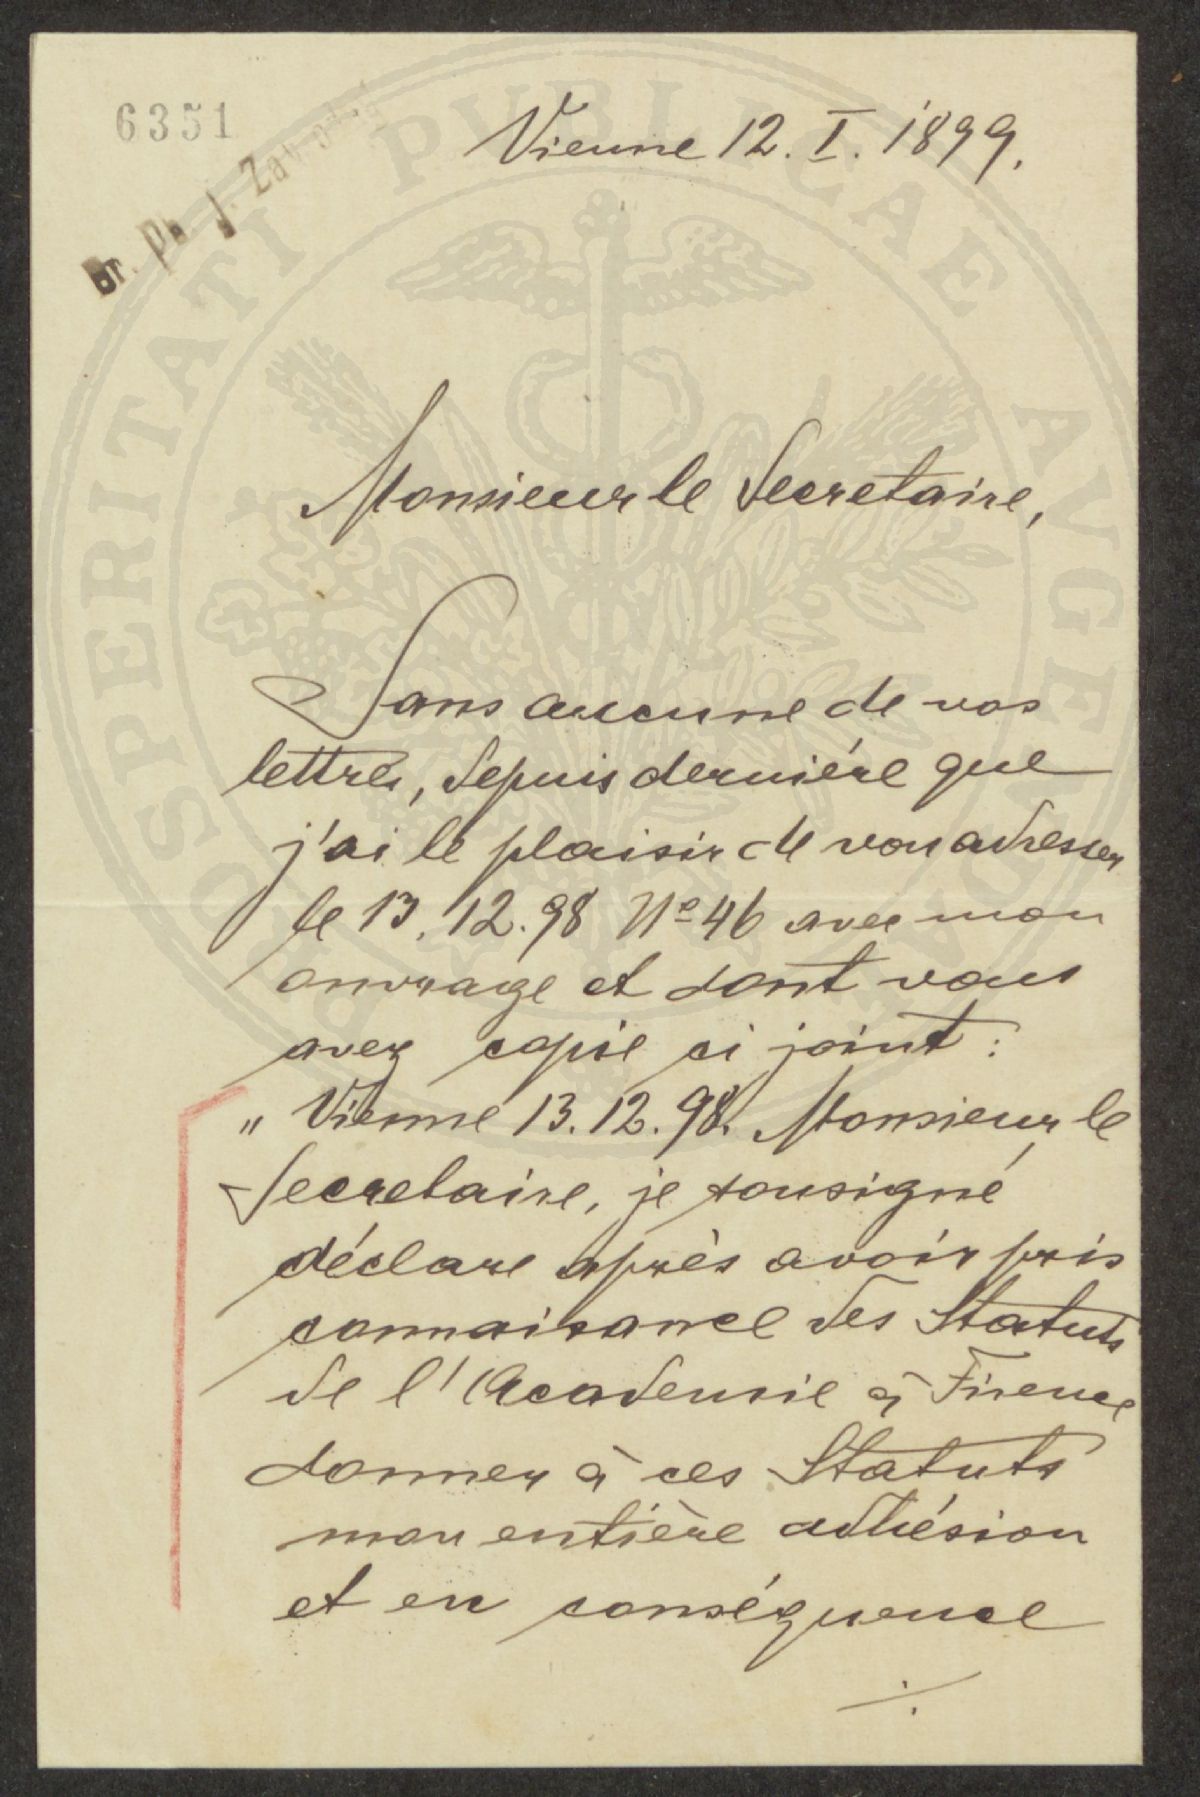 6351
Dr. Ph. J. Zavodny
PROSPERITATI PVBLICAE AVGENDAE
Vienne 12. I. 1899.
Monsieur le Secretaire,
Sans aucune de vos
lettres, depuis derniére que
j'ai le plaisir de vou adresser
le 13. 12. 98 No 46 avec mon
onvrage et dont vous
avez copie ci joint :
„ Vienne 13. 12. 98. Monsieur le
Secretaire, je sousigné
déclare après avoir pris
connaisance des Statuts
de l'Academie à Firence
donner à ces Statuts
mon entière adhésion
et en conséquence
./.